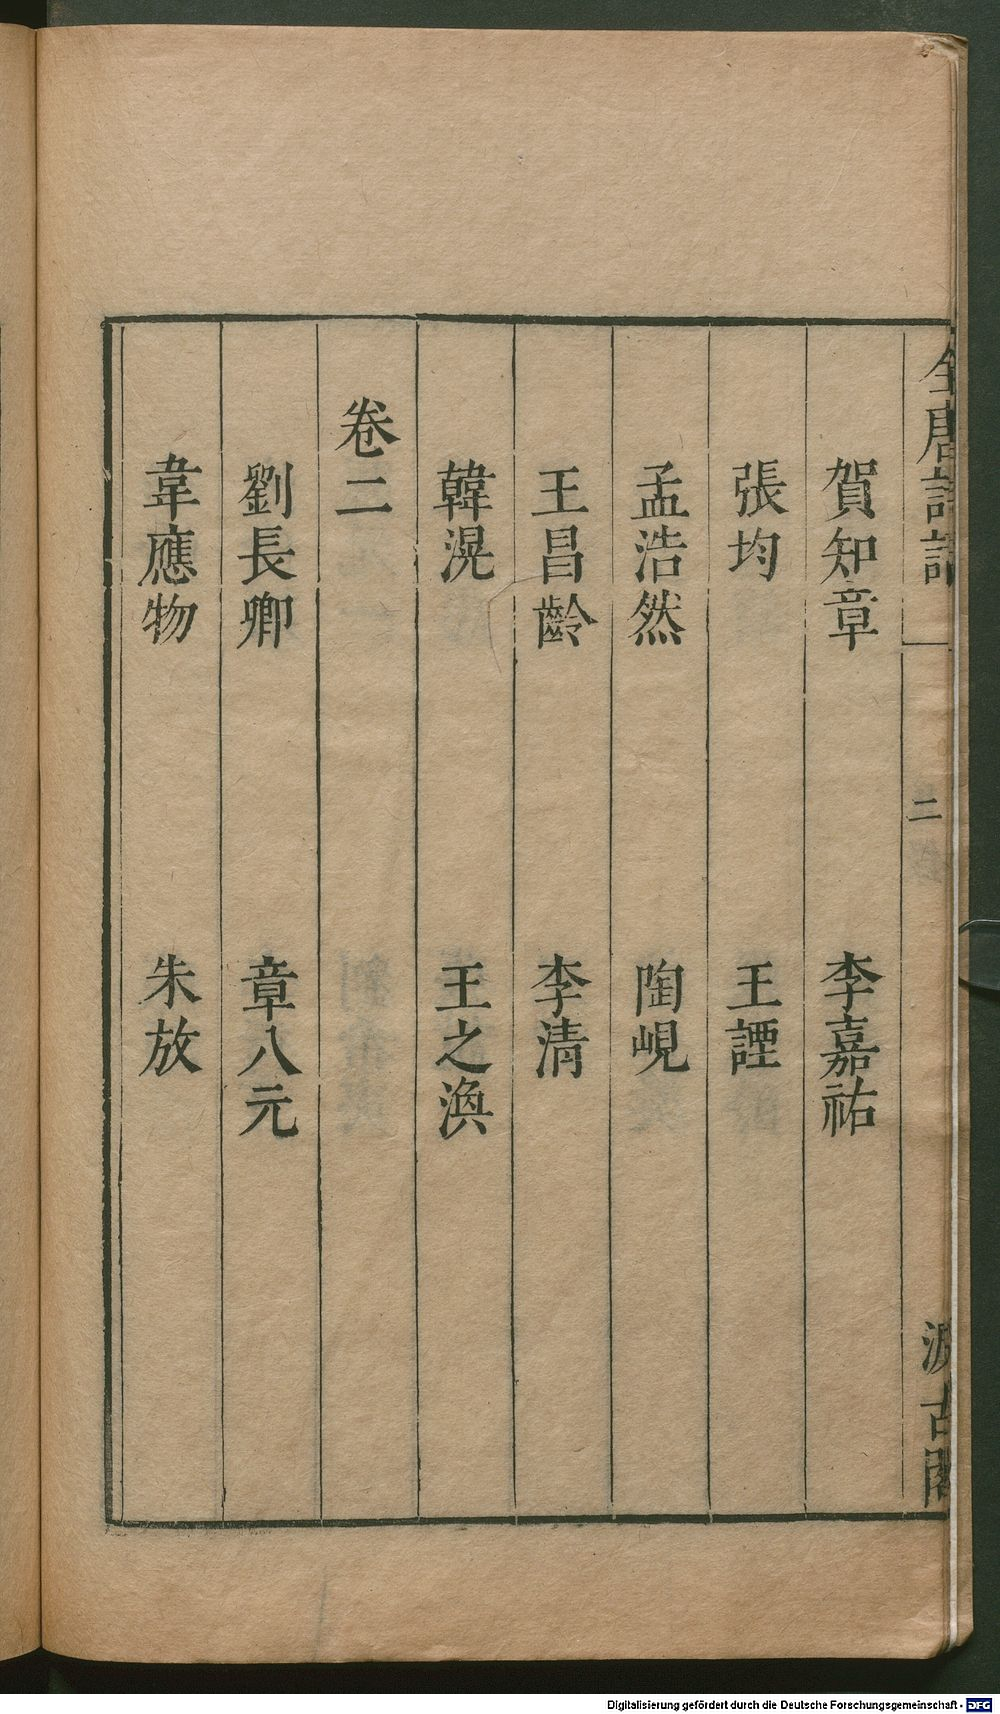 全唐詩話
二
汲古閣
賀知章 李嘉祐
張均 王諲
孟浩然 陶峴
王昌齡 李清
韓滉 王之渙
卷二
劉長卿 章八元
韋應物 朱放
Digitalisierung gefördert durch die Deutsche Forschungsgemeinschaft - DFG